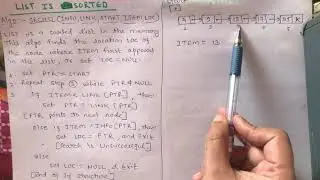 LIST IS SORTED
Algo :- SRCHSL (INFO, LINK, START, ITEM, LOC)
LIST is a sorted list in the memory
This algo finds the location LOC of
the node where ITEM first appears
in the list, or sets LOC = NULL
1. Set PTR := START
2. Repeat step 3 while PTR ≠ NULL
3. If ITEM < INFO [PTR], then
set PTR := LINK [PTR]
[PTR points to next node]
else if ITEM = INFO [PTR], then
set LOC = PTR, and EXIT
[Search is Unsuccessful]
else
set LOC := NULL & Exit
[End of If structure]
Start
ITEM = 13